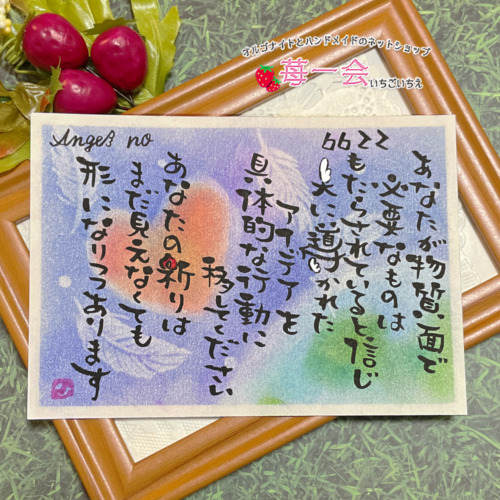 オルゴナイトとハンドメイドのネットショップ
苺一会
いちごいちえ
Angel no
6622
あなたが物質面で
必要なものは
もたらされていると信じ
天に導かれた
アイディアを
具体的な行動に
移してください
あなたの祈りは
まだ見えなくても
形になりつつあります